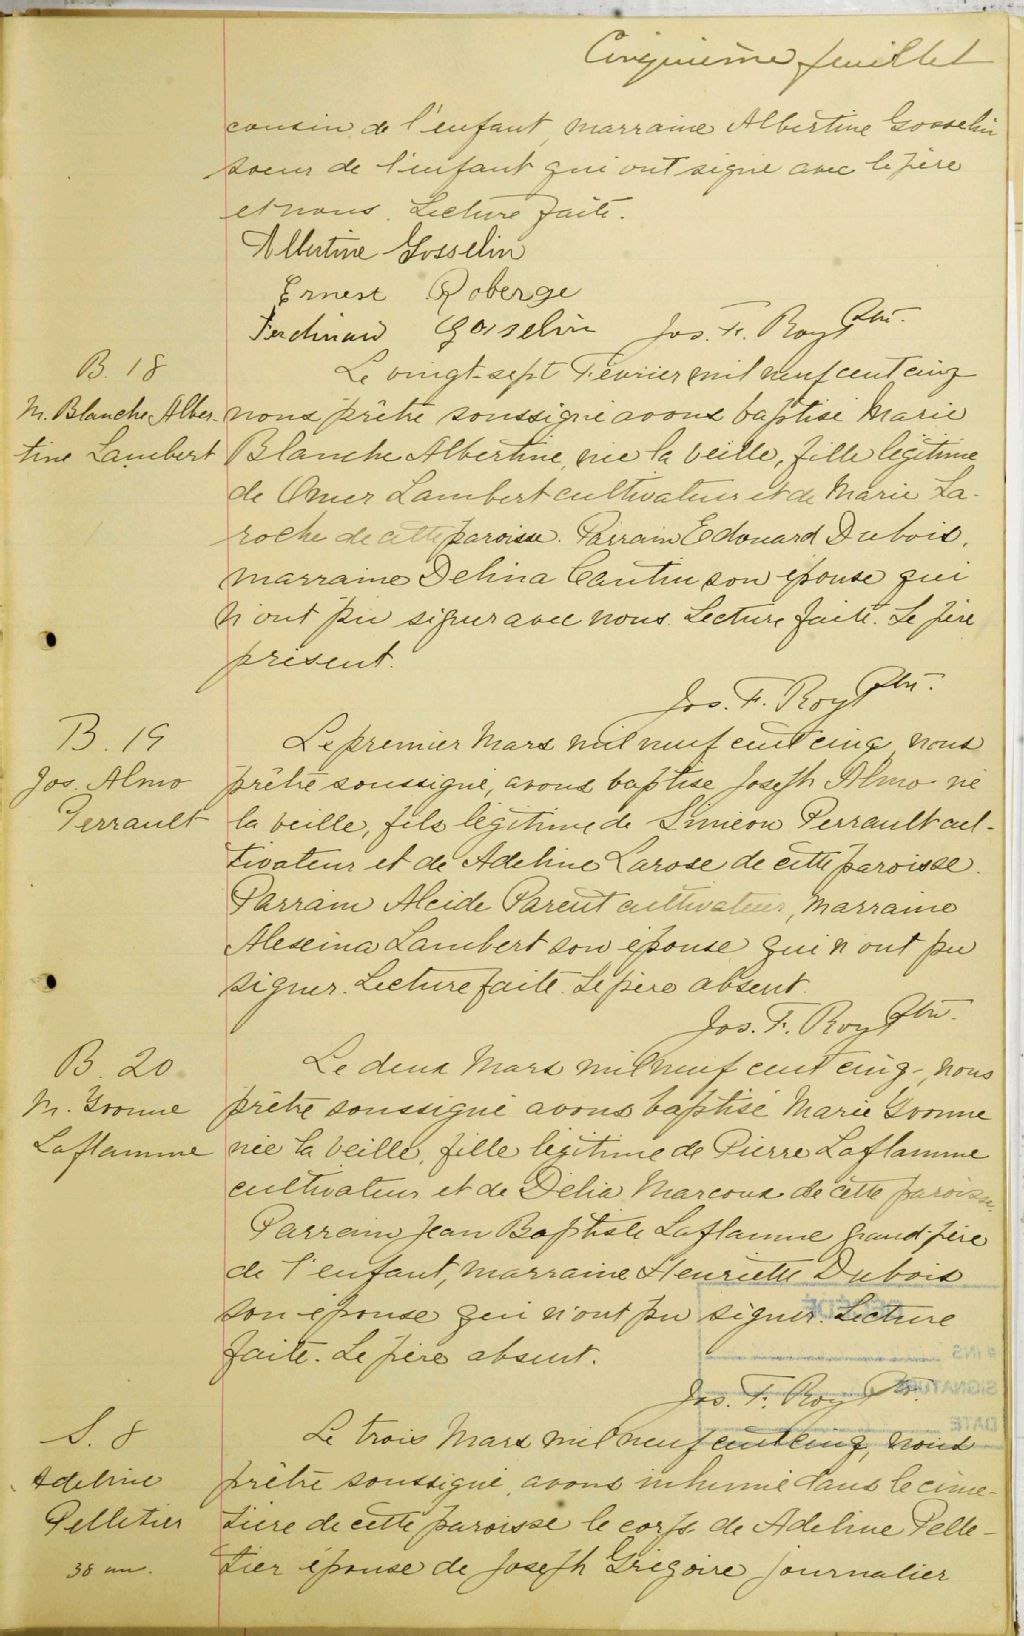 Cinquième feuillet
cousin de l'enfant, marraine Albertine Gosselin
soeur de l'enfant qui ont signé avec le père
et nous. Lecture faite.
Albertine Gosselin
Ernest Roberge
Ferdinand Gosselin Jos. F. Roy Ptre.
B. 18
M. Blanche Alber-
tine Lambert
Le vingt-sept Février mil neuf cent cinq
nous prêtre soussigné avons baptisé Marie
Blanche Albertine, née la veille, fille légitime
de Omer Lambert cultivateur et de Marie La-
roche de cette paroisse. Parrain Edouard Dubois,
marraine Delina Cantin son épouse qui
n'ont pu signer avec nous. Lecture faite. Le père
présent.
Jos. F. Roy Ptre.
B. 19
Jos. Almo
Perrault
Le premier Mars mil neuf cent cinq, nous
prêtre soussigné, avons baptisé Joseph Almo né
la veille, fils légitime de Siméon Perrault cul-
tivateur et de Adeline Larose de cette paroisse.
Parrain Alcide Parent cultivateur, marraine
Alexina Lambert son épouse qui n'ont pu
signer. Lecture faite. Le père absent.
Jos. F. Roy Ptre.
B. 20
M. Yvonne
Laflamme
Le deux Mars mil neuf cent cinq, nous
prêtre soussigné avons baptisé Marie Yvonne
née la veille, fille légitime de Pierre Laflamme
cultivateur et de Délia Marcoux de cette paroisse.
Parrain Jean Baptiste Laflamme grand-père
de l'enfant, marraine Henriette Dubois
son épouse qui n'ont pu signer. Lecture
faite. Le père absent.
Jos. F. Roy Ptre.
DÉCÉDÉ
# INS
SIGNATURE
DATE
S. 8
Adeline
Pelletier
38 ans.
Le trois Mars mil neuf cent cinq, nous
prêtre soussigné, avons inhumé dans le cime-
tière de cette paroisse le corps de Adeline Pelle-
tier épouse de Joseph Grégoire journalier